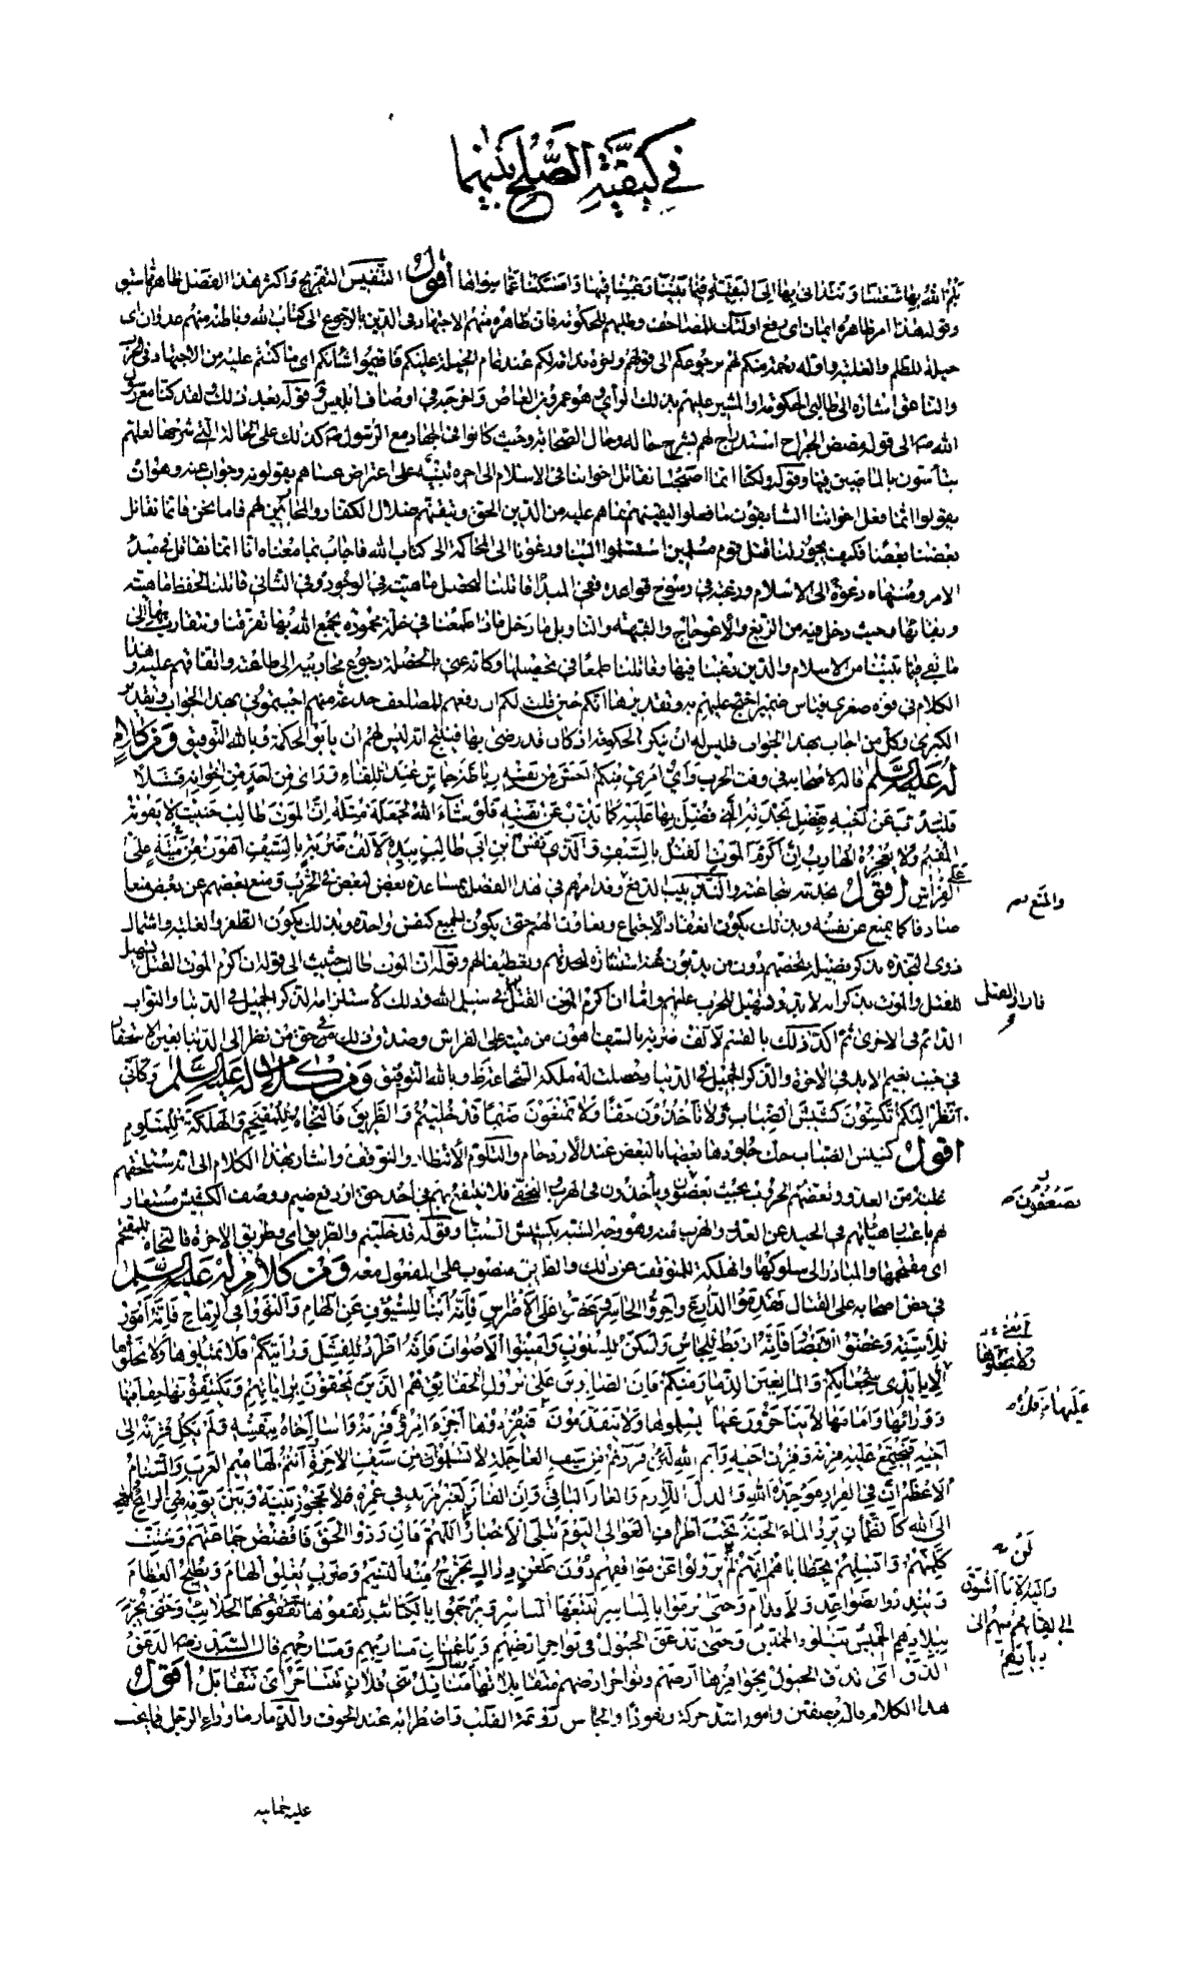 في كيفية الصلح بينهما
يلم الله بها شعثنا ونتدانى بها الى البقية فيما بيننا رغبنا فيها وامسكنا عما سواها أقول التنفيس التفريج واكثر هذا الفصل ظاهر مما سبق
وقوله هذا امر ظاهره ايمان اى رفع اولئك المصاحف وطلبهم للحكومة فان ظاهره منهم الاجتهاد في الدين بالرجوع الى كتاب الله وباطنه منهم عدوان اى
حيلة للظلم والغلبة واوله رحمة منكم لهم برجوعكم الى قولهم واخره ندامة لكم عند تمام الحيلة عليكم فاقيموا شأنكم اى ما كنتم عليه من الاجتهاد في الحرب
والناعق اشارة الى طالبى الحكومة او المشير عليهم بذلك الرأى وهو عمرو بن العاص واخرجه في اوصاف ابليس وقوله بعد ذلك لقد كنا مع رسول
الله صم الى قوله مضض الجراح استدراج لهم بشرح حاله وحال الصحابة وحيث كانوا في الجهاد مع الرسول صم كذلك على الحالة التي شرحها لعلهم
يتأسون بالماضين فيها وقوله ولكنا انما اصبحنا نقاتل اخواننا في الاسلام الى اخره تنبيه على اعتراض عساهم يقولونه وجواب عنه وهو ان
يقولوا انما فعل اخواننا السابقون ما فعلوا ليقينهم بما هم عليه من الدين الحق وتيقنهم ضلال الكفار والمحاربين لهم فاما نحن فانما نقاتل
بعضنا بعضا فكيف يجوز لنا قتل قوم مسلمين استسلموا الينا ودعونا الى المحاكمة الى كتاب الله فاجاب بما معناه انا انما نقاتل في مبدأ
الامر ومنتهاه دعوة الى الاسلام ورغبة في رسوخ قواعده ففى المبدأ قاتلنا لتحصل ماهيته في الوجود وفى الثانى قاتلنا لحفظ ماهيته
وبقائها وحيث دخل فيه من الزيغ والاعوجاج والشبهة والتاويل ما دخل فاذا طمعنا في خلة محمودة يجمع الله بها تفرقنا ونتقارب بها الى
ما بقى فيما بيننا من الاسلام والدين رغبنا فيها وقاتلنا طمعا في تحصيلها وكانه عنى بالخصلة رجوع محاربيه الى طاعته واتفاقهم عليه وهذا
الكلام في قوة صغرى قياس ضمير احتج عليهم به وتقديرها انكم حين قلت لكم ان رفعهم المصاحف خدعة منهم اجبتمونى بهذا الجواب وتقدير
الكبرى وكل من اجاب بهذا الجواب فليس له ان ينكر الحكومة اذ كان قد رضى بها فينتج انه ليس لهم ان يأبوا الحكمة وبالله التوفيق ومن كلام
له عليه السلم قاله لاصحابه في وقت الحرب وأي امرئ منكم احس من نفسه رباطة جأش عند اللقاء ورأى من احد من اخوانه فشلا
فليذب عن اخيه بفضل نجدته التي فضل بها عليه كما يذب عن نفسه فلو شاء الله لجعله مثله ان الموت طالب حثيث لا يفوته
المقيم ولا يعجزه الهارب ان اكرم الموت القتل بالسيف والذي نفس ابن ابى طالب بيده لالف ضربة بالسيف اهون من ميتة على
الفراش أقول نجدته شجاعته والتذبيب الدفع وقد امرهم في هذا الفصل بمساعدة بعض لبعض في الحرب ومنع بعضهم عن بعض منعا
والمنع صم
صادقا كما يمنع عن نفسه وبذلك يكون انعقاد الاجتماع وتعاون الهمم حتى يكون الجميع كنفس واحدة وبذلك يكون الظفر والغلبة واستمال
ذوى النجدة بذكر فضيلة تخصهم دون من يذبون عنه استثارة لنجدتهم وتعطيفا لهم وقوله ان الموت طالب حثيث الى قوله ان اكرم الموت القتل تسهيل
للقتل والموت بذكر انه لابد منه تسهيل للحرب عليهم وانما كان اكرم الموت القتل في سبيل الله وذلك لاستلزامه الذكر الجميل في الدنيا والثواب
الدائم في الاخرى ثم اكد ذلك بالقسم لالف ضربة بالسيف اهون من ميتة على الفراش وصدق ذلك في حق من نظر الى الدنيا بعين الاستحقار
في جنب نعيم الابد في الاخرة والذكر الجميل في الدنيا وحصلت له ملكة الشجاعة وبالله التوفيق ومن كلام له عليه السلم وكأنى
انظر اليكم تكشون كشيش الضباب ولا تأخذون حقا ولا تمنعون ضيما قد خليتم والطريق فالنجاة للمقتحم والهلكة للمتلوم
أقول كشيش الضباب حك جلودها بعضها بالبعض عند الازدحام والتلوم الانتظار والتوقف واشار بهذا الكلام الى انه ستلحقهم
غلبة من العدو وتعضهم الحرب بحيث يضعفون ويأخذون في الهرب فلا ينتفع بهم في اخذ حق او دفع ضيم ووصف الكشيش مستعار
لهم باعتبار هيئاتهم في الحيد عن العدو والهرب منه وهو وجه الشبه بكشيش الضباب وقوله قد خليتم والطريق اى وطريق الاخرة فالنجاة للمقتحم
اى مقتحمها والمبادر الى سلوكها والهلكة للمتوقف عن ذلك والطريق منصوب على المفعول معه ومن كلام له عليه السلم
في حض اصحابه على القتال فقدموا الدارع واخروا الحاسر وعضوا على الاضراس فانه أنبا للسيوف عن الهام والتووا في اطراف الرماح فانه امور
للاسنة وغضوا الابصار فانه اربط للجاش واسكن للقلوب واميتوا الاصوات فانه اطرد للفشل ورايتكم فلا تميلوها ولا تخلوها
ولا تجعلوها
الا بايدى شجعانكم والمانعين الذمار منكم فان الصابرين على نزول الحقائق هم الذين يحفون براياتهم ويكتنفونها حفافيها
ووراءها وامامها لا يتأخرون عنها فيسلموها ولا يتقدمون عليها فيفردوها اجزء امرؤ قرنه واسا اخاه بنفسه ولم يكل قرنه الى
اخيه فيجتمع عليه قرنه وقرن اخيه وايم الله لئن فررتم من سيف العاجلة لا تسلموا من سيف الاخرة انتم لهاميم العرب والسنام
الاعظم ان في الفرار موجدة الله والذل اللازم والعار الباقى وان الفار لغير مزيد في عمره ولا محجوز بينه وبين يومه من الرائح
الى الله كالظمآن يرد الماء الجنة تحت اطراف العوالى اليوم تبلى الاخبار اللهم فان ردوا الحق فافضض جماعتهم وشتت
كلمتهم وابسلهم بخطاياهم انهم لن يزولوا عن مواقفهم دون طعن دراك يخرج منه النسيم وضرب يفلق الهام ويطيح العظام
ويندر السواعد والاقدام وحتى يرموا بالمناسر تتبعها المناسر ويرجموا بالكتائب تقفوها الحلائب وحتى يجر
ببلادهم الخميس يتلوه الخميس وحتى تدعق الخيول في نواحر ارضهم وباعنان مساربهم ومسارحهم قال السيد رضه الدعق
الدق اى تدق الخيول بحوافرها ارضهم ونواحر ارضهم متقابلاتها يقال منازل بنى فلان تتناحر اى تتقابل أقول
هذا الكلام قاله بصفين وامور اشد حركة ونفوذا والجاش روعة القلب واضطرابه عند الخوف والذمار ما وراء الرجل مما يجب
عليه حمايته